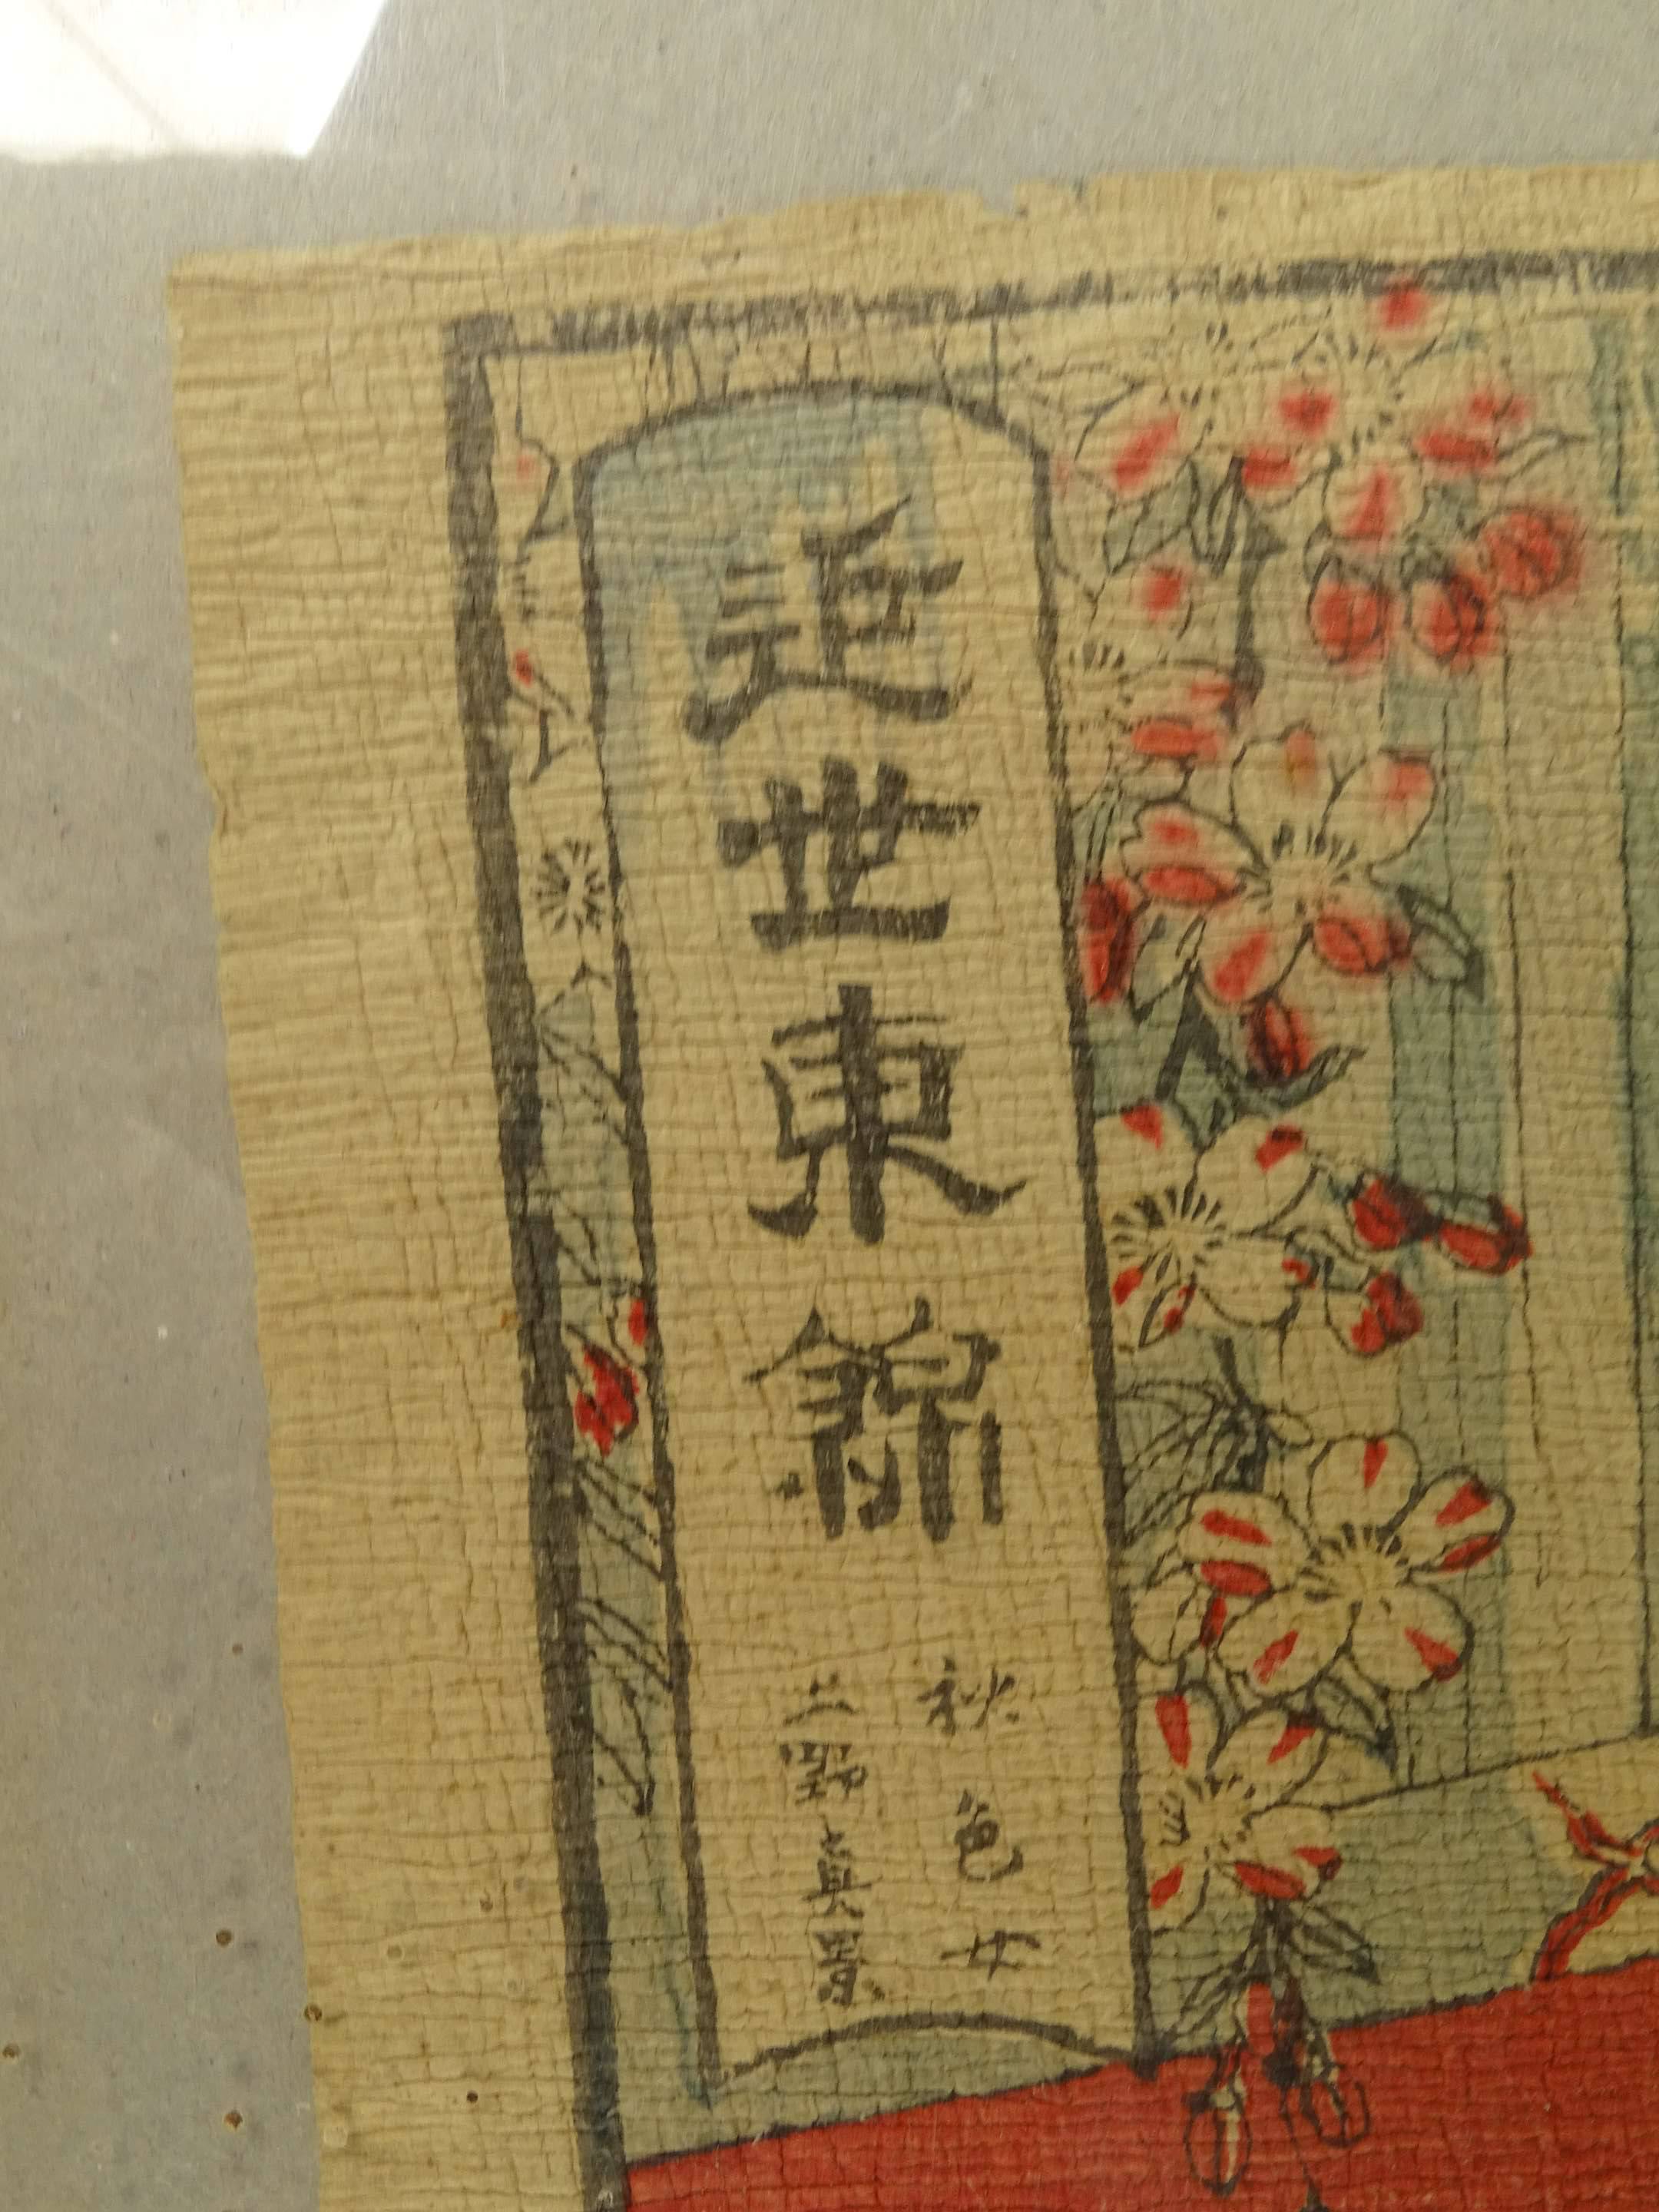 近世東錦
秋色女
上野真景